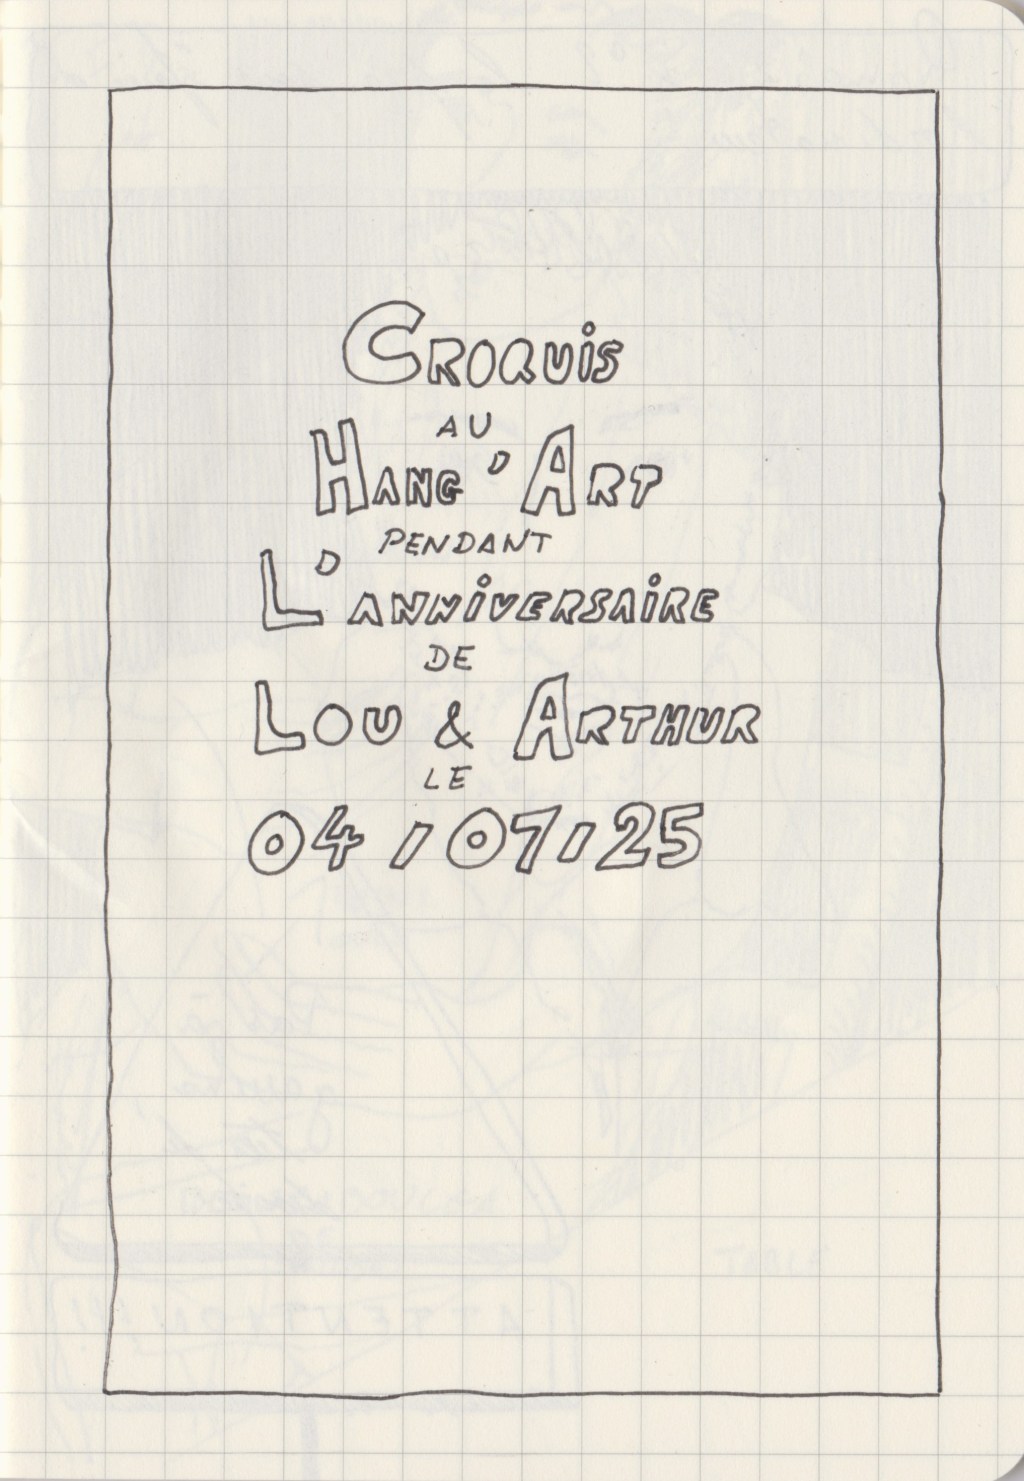 CROQUIS
AU
HANG'ART
PENDANT
L'ANNiVERSAiRE
DE
LOU & ARTHUR
LE
04/07/25